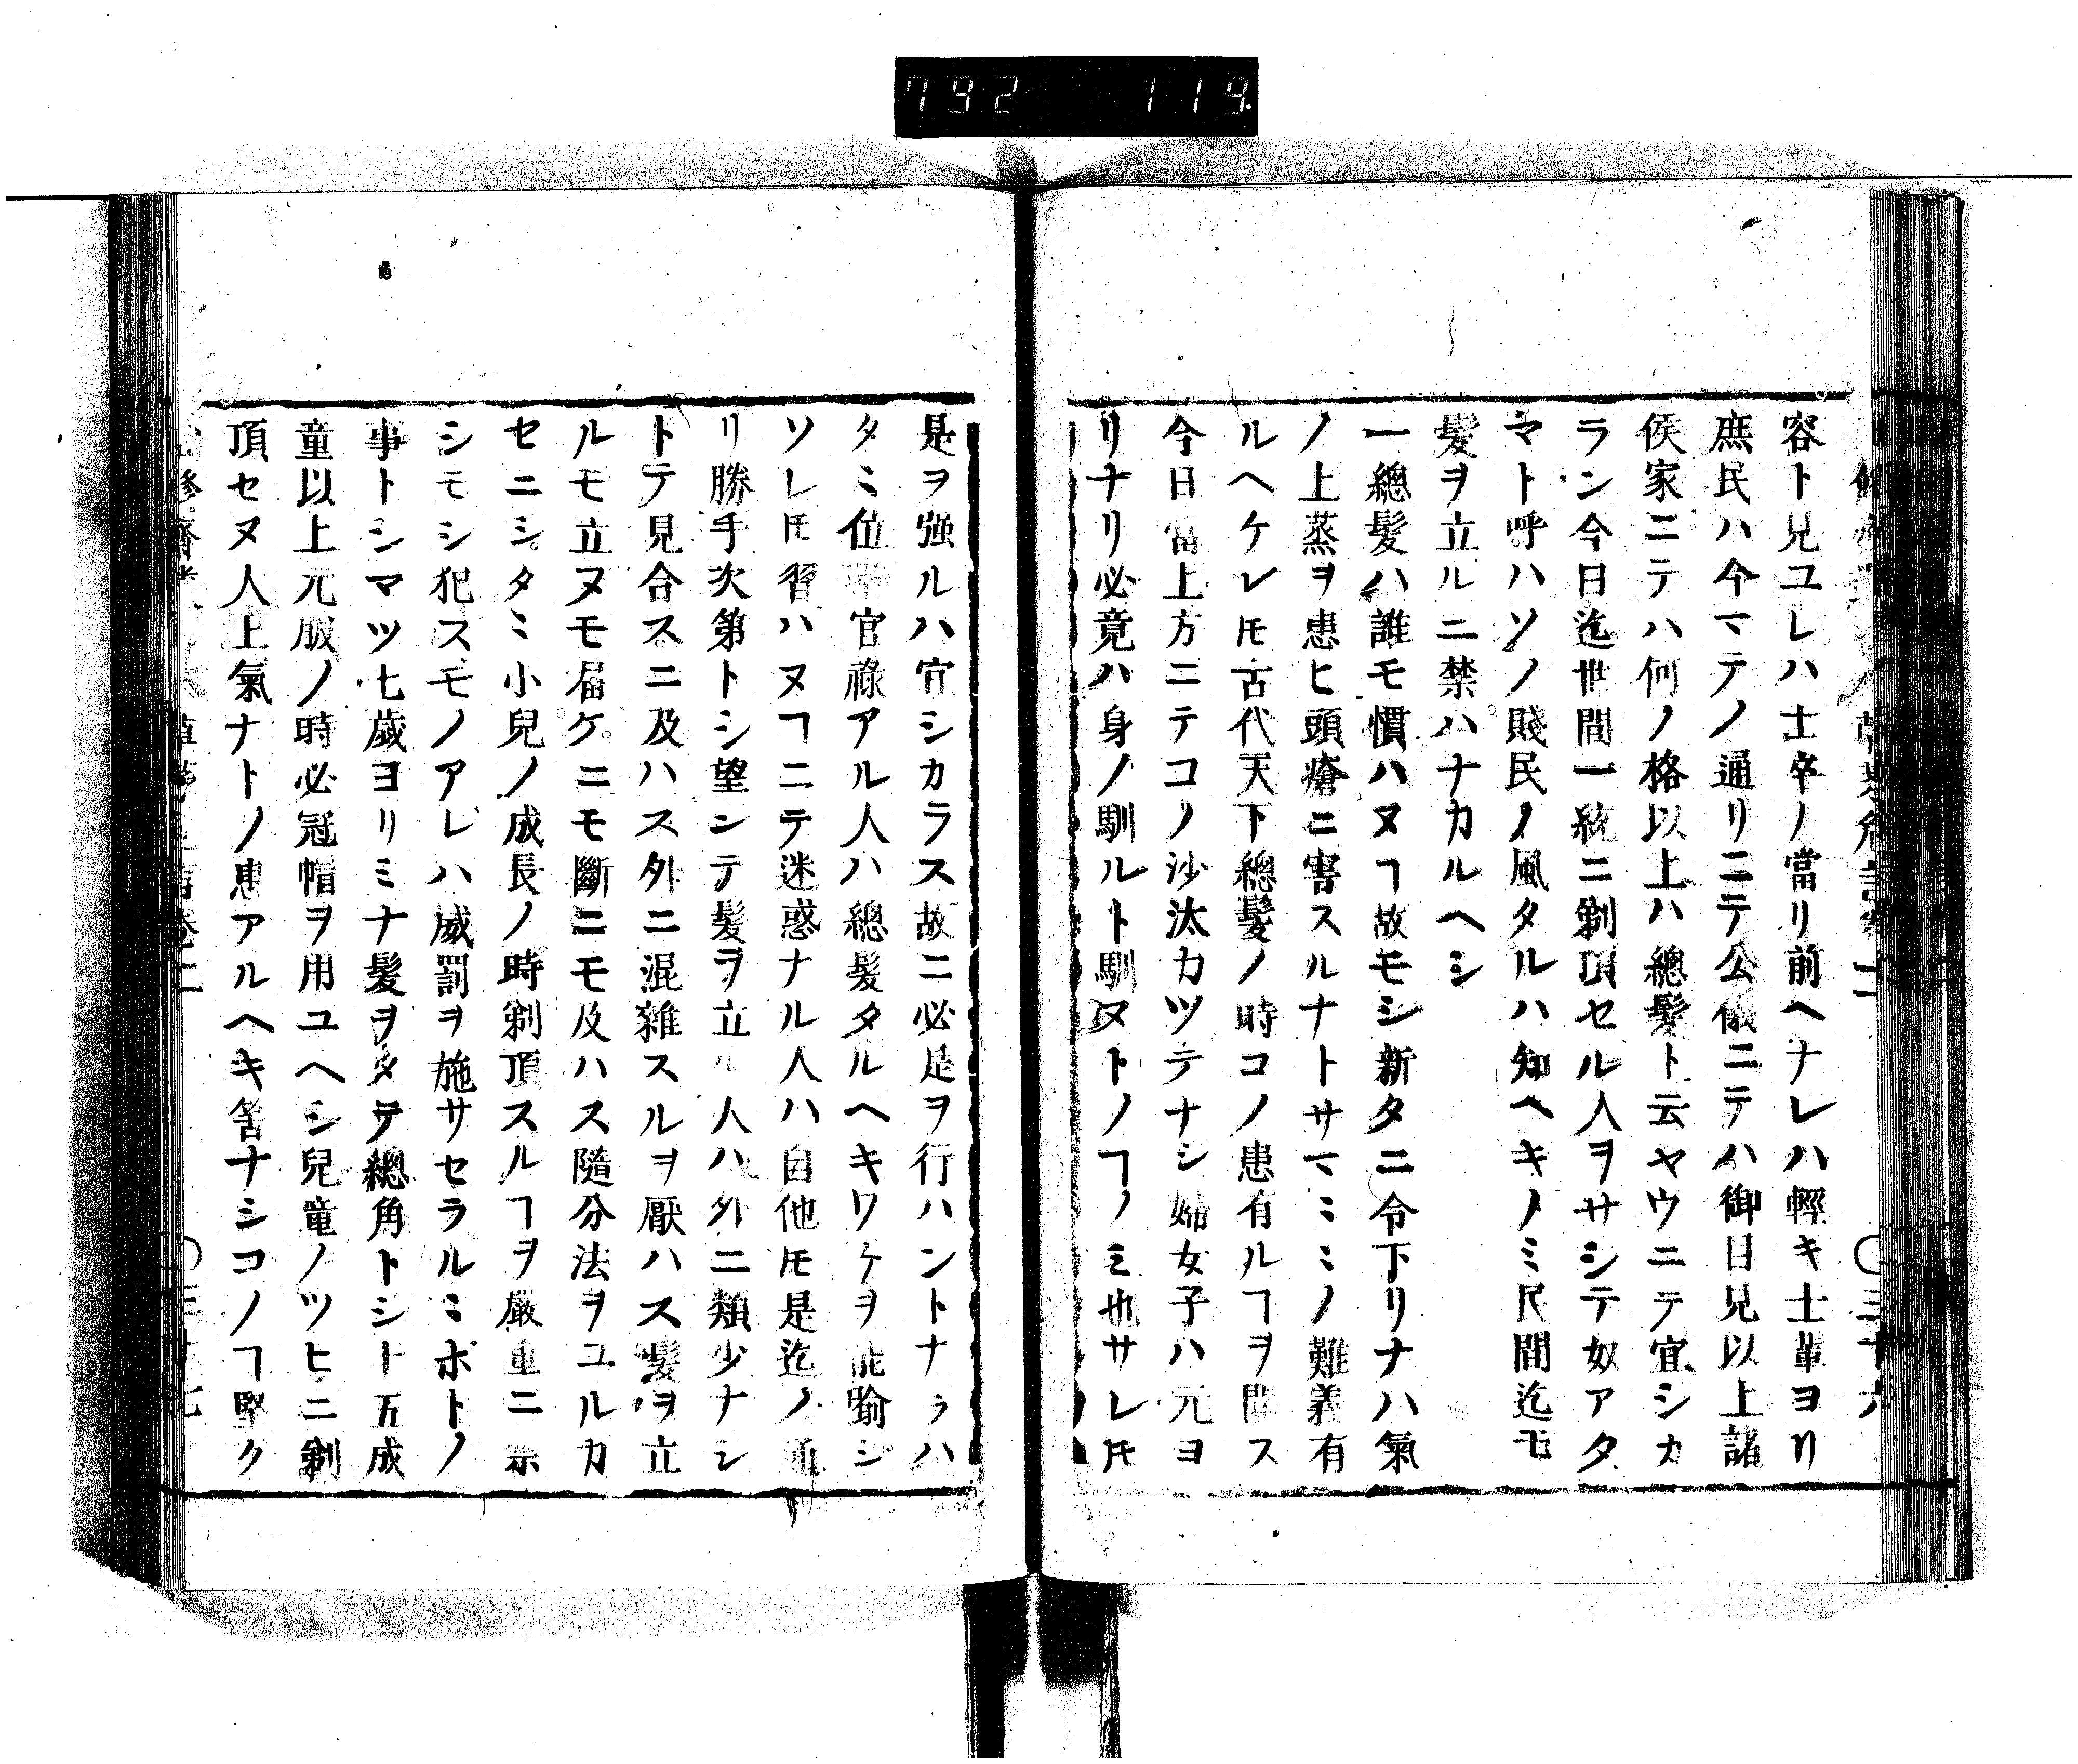 792 119
容ト見ユレハ士卒ノ當リ前ヘナレハ輕キ士輩ヨリ
庶民ハ今マテノ通リニテ公儀ニテハ御目見以上諸
侯家ニテハ何ノ格以上ハ總髮ト云ヤウニテ宜シカ
ラン今日迄世間一統ニ剃頂セル人ヲサシテ奴アタ
マト呼ハソノ賤民ノ風タルハ知ヘキノミ民間迄モ
髮ヲ立ルニ禁ハナカルヘシ
一總髮ハ誰モ慣ハヌヿ故モシ新タニ令下リナハ氣
ノ上蒸ヲ患ヒ頭瘡ニ害スルナトサマミミノ難義有
ルヘケレ𪜈古代天下總髮ノ時コノ患有ルヿヲ聞ス
今日當上方ニテコノ沙汰カツテナシ婦女子ハ元ヨ
リナリ必竟ハ身ノ馴ルト馴ヌトノヿノミ也サレ𪜈
是ヲ強ルハ宜シカラス故ニ必是ヲ行ハントナラハ
タミ位 官祿アル人ハ總髮タルヘキワケヲ能喻シ
ソレ𪜈習ハヌヿニテ迷惑ナル人ハ自他𪜈是迄ノ通
リ勝手次第トシ望シテ髮ヲ立ル人ハ外ニ類少ナシ
トテ見合スニ及ハス外ニ混雜スルヲ厭ハス髮ヲ立
ルモ立ヌモ届ケニモ斷ニモ及ハス隨分法ヲユルカ
セニシタミ小兒ノ成長ノ時剃頂スルヿヲ嚴重ニ禁
シモシ犯スモノアレハ威罰ヲ施サセラルミホトノ
事トシマツ七歲ヨリミナ髮ヲタテ總角トシ十五成
童以上元服ノ時必冠帽ヲ用ユヘシ兒童ノツヒニ剃
頂セヌ人上氣ナトノ患アルヘキ筈ナシコノヿ堅ク